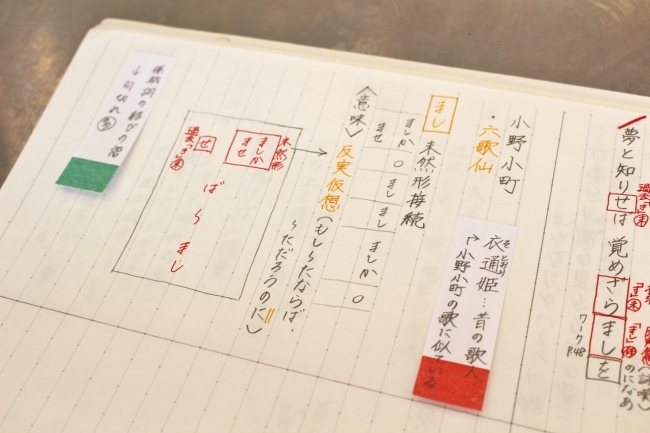 夢と知りせば 覚めざらましを
過去「き」未
ワークP.48
小野小町
・六歌仙
衣通姫…昔の歌人
小野小町の歌に似ている
まし 未然形接続
ませ ましか ○ まし まし ましか ○
〈意味〉反実仮想(もし〜たならば、
〜ただろうのに)
未然形
ましか
ませ
せ
過去「き」未
ば〜まし
の結びの
↓句切れ